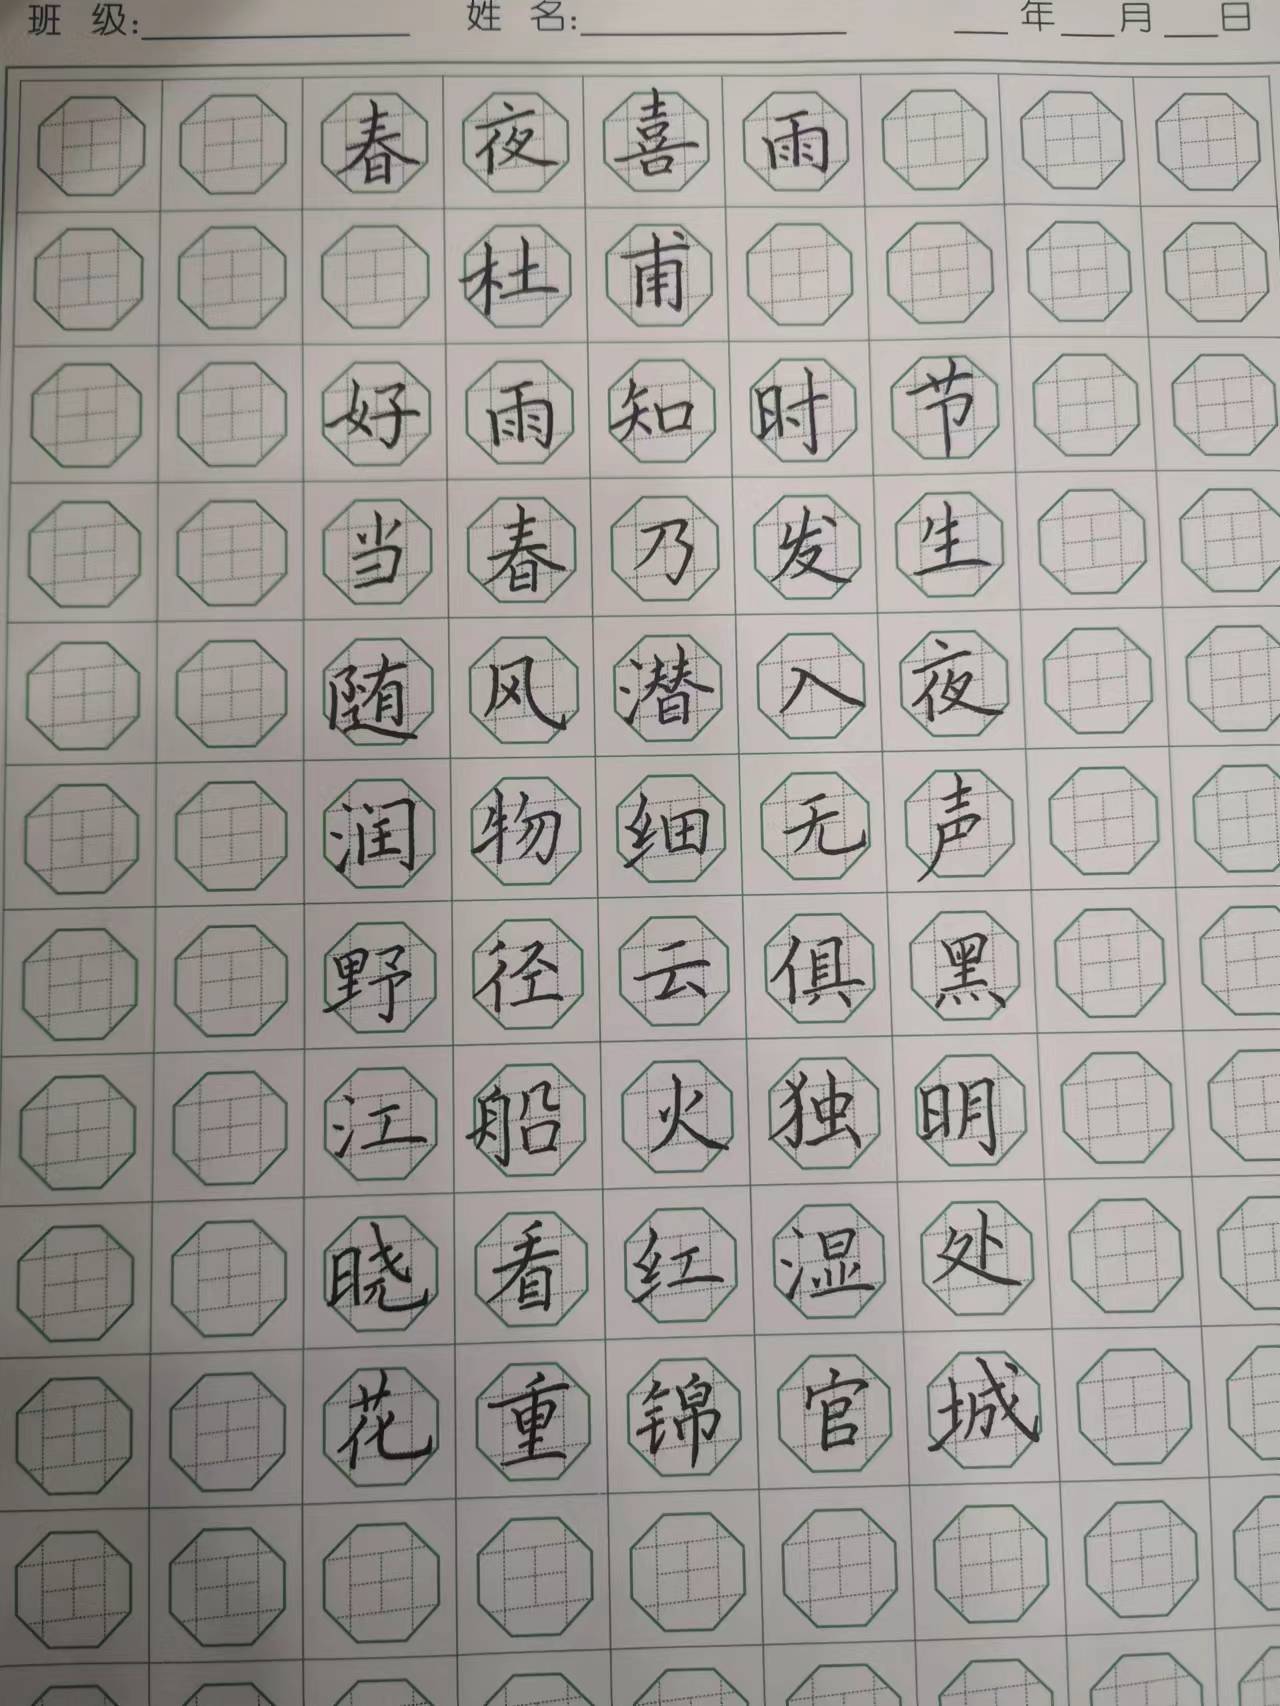 班 级: 姓 名: 年 月 日
春夜喜雨
杜甫
好雨知时节
当春乃发生
随风潜入夜
润物细无声
野径云俱黑
江船火独明
晓看红湿处
花重锦官城